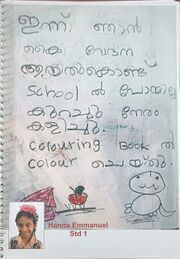 ഇന്ന് ഞാൻ
കൈ വേദന
ആയതുകൊണ്ട്
School ൽ പോയില്ല
കുറച്ചു നേരം
കളിച്ചു.
colouring Book ൽ
colour ചെയ്തു.
Hanna Emmanuel
Std 1